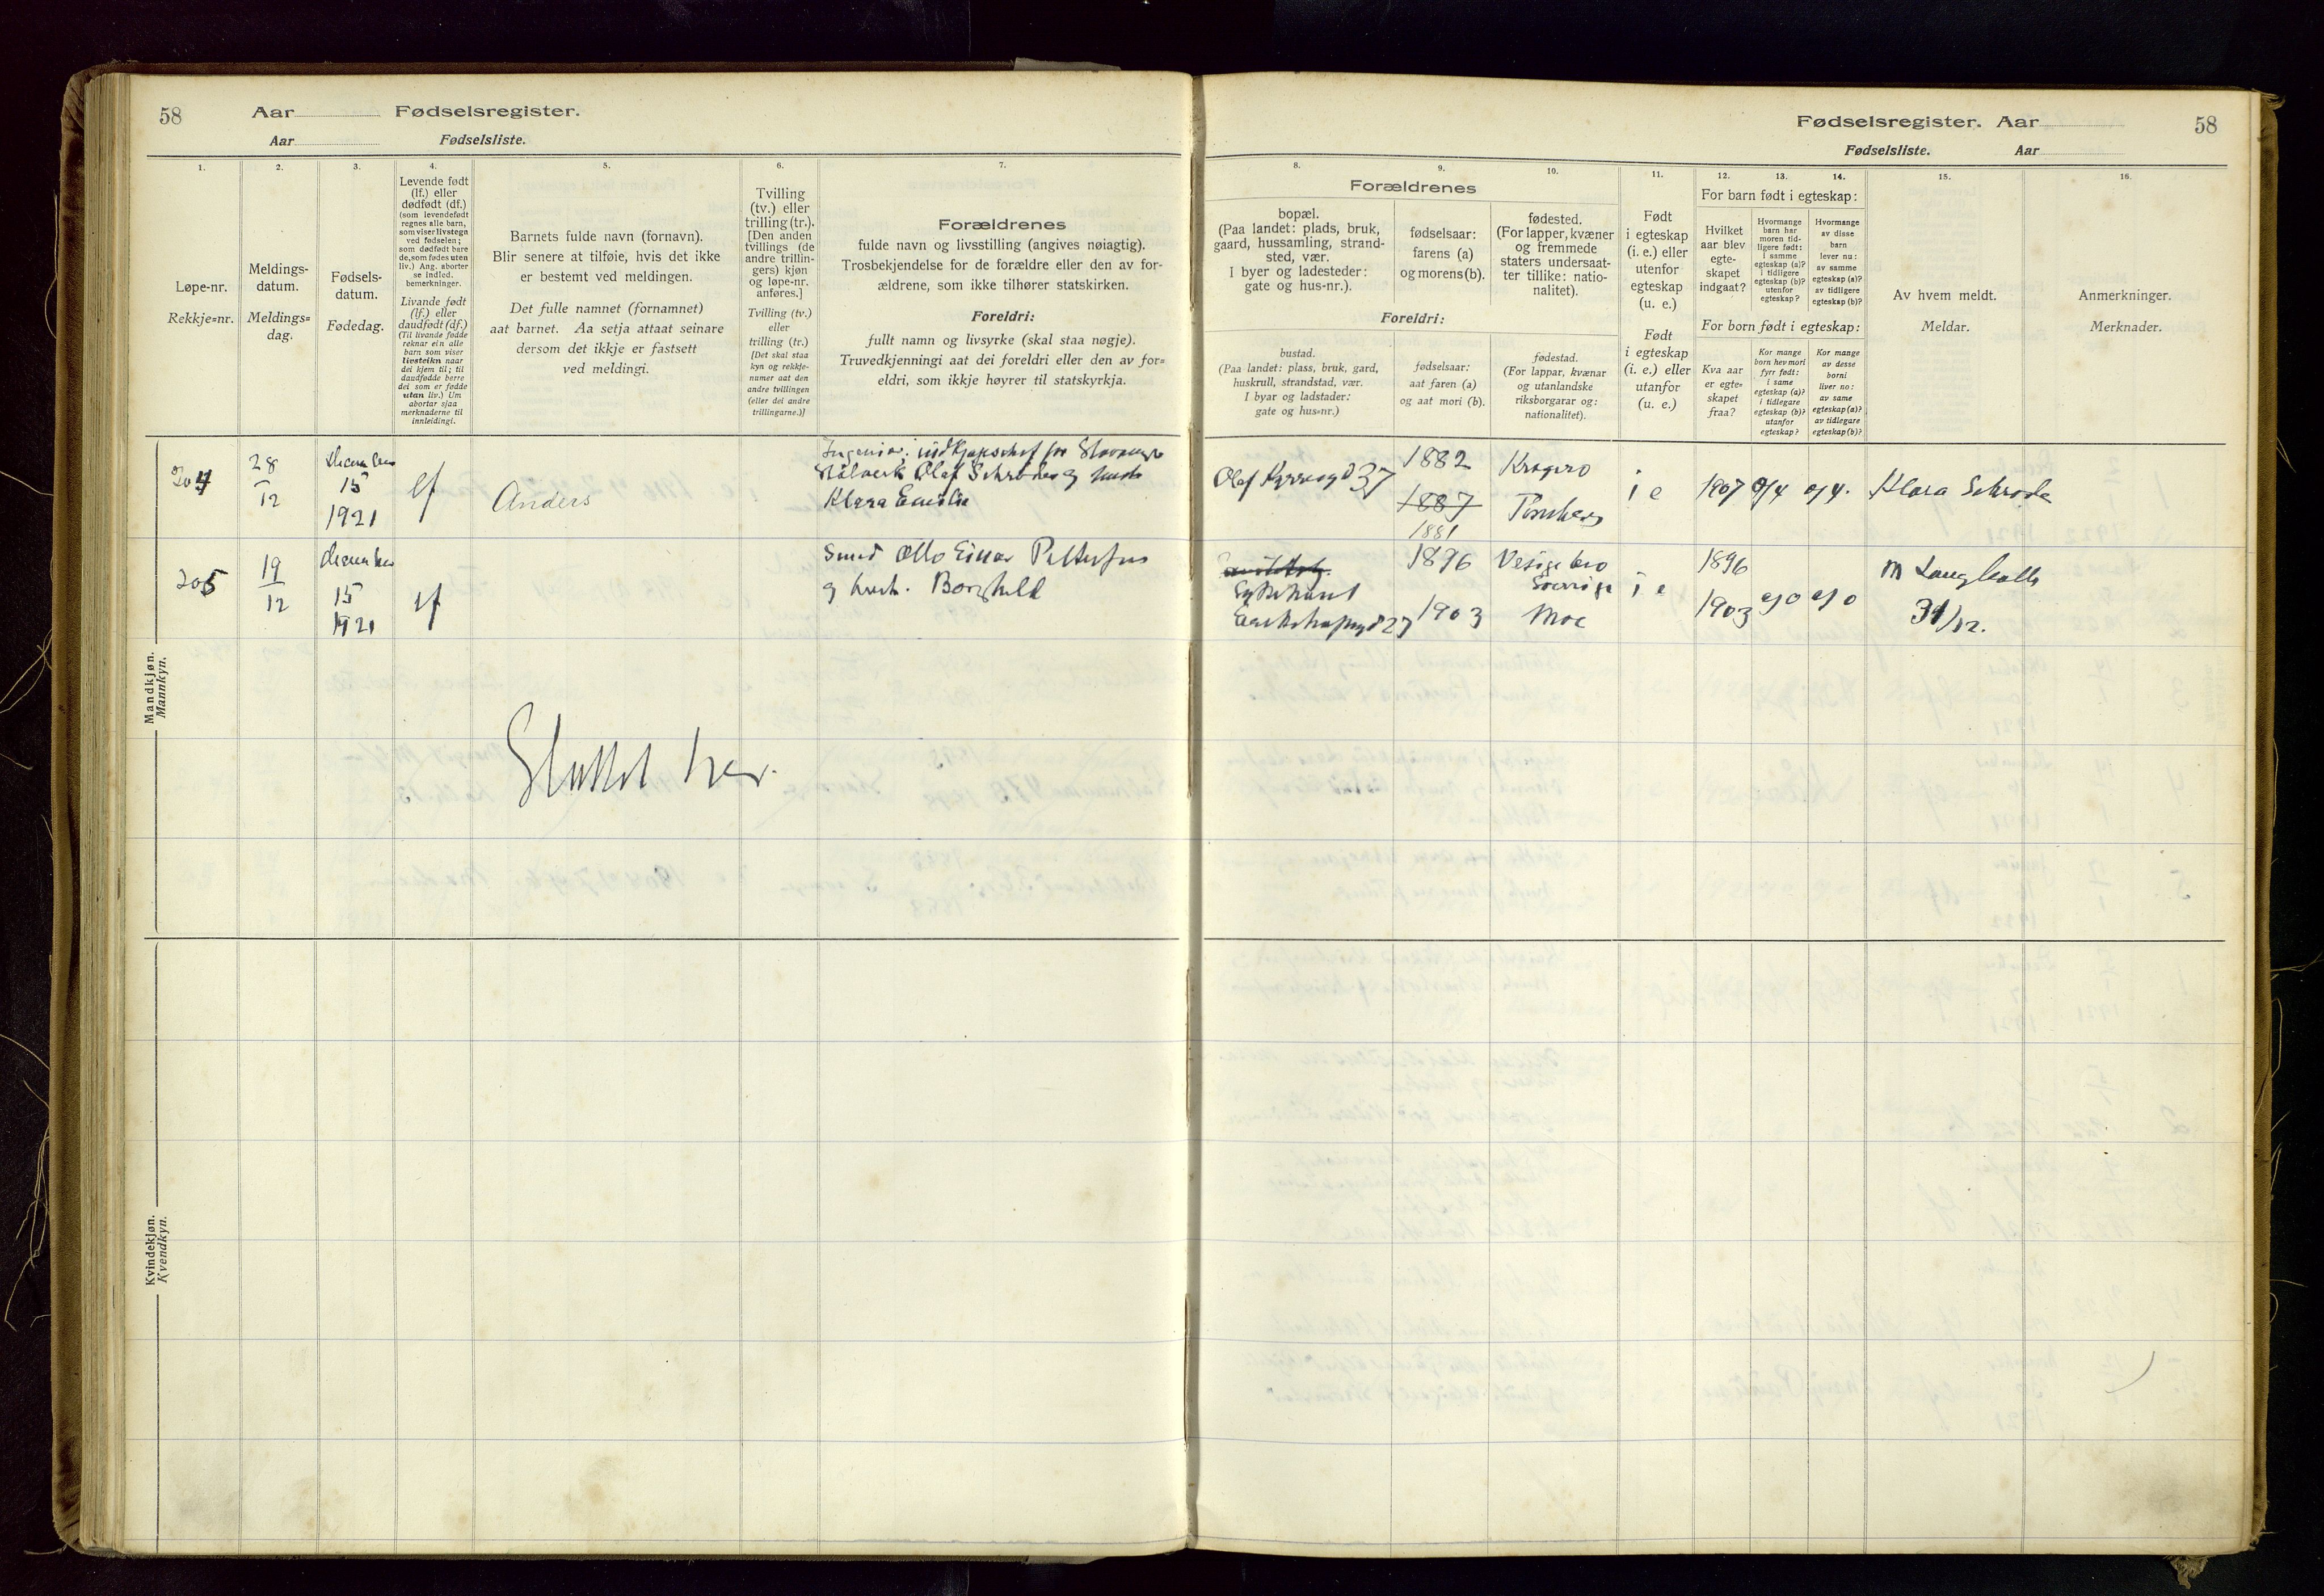 58 Aar Fødselsregister.
Aar Fødselsliste.
1. 2. 3. 4. 5. 6. 7.
Løpe-nr.
Rekkje=nr.
Meldings-
datum.
Meldings=
dag.
Fødsels-
datum.
Fødedag.
Levende født
(lf.) eller
dødfødt (df.)
(som levendefødt
regnes alle barn,
som viser livstegn
ved fødselen;
som dødfødt bare
de, som fødes uten
liv.) Ang. aborter
se indled.
bemerkninger.
Livande født
(lf.) eller
daudfødt (df.)
(Til livande fødde
reknar ein alle
barn som viser
livsteikn naar
dei kjem til; til
daudfødde berre
dei som er fødde
utan liv.) Um
abortar sjaa
merknaderne til
innleidingi.
Barnets fulde navn (fornavn).
Blir senere at tilføie, hvis det ikke
er bestemt ved meldingen.
Det fulle namnet (fornamnet)
aat barnet. Aa setja attaat seinare
dersom det ikkje er fastsett
ved meldingi.
Tvilling
(tv.) eller
trilling (tr.).
[Den anden
tvillings (de
andre trillin-
gers) kjøn
og løpe-nr.
anføres.]
Tvilling (tv.)
eller
trilling (tr.)
[Det skal staa
kyn og rekkje-
numer aat den
andre tvillingen
(eller dei andre
trillingarne.)]
Forældrenes
fulde navn og livsstilling (angives nøiagtig).
Trosbekjendelse for de forældre eller den av for-
ældrene, som ikke tilhører statskirken.
Foreldri:
fullt namn og livsyrke (skal staa nøgje).
Truvedkjenningi aat dei foreldri eller den av for=
eldri, som ikkje høyrer til statskyrkja.
Mandkjøn.
Mannkyn.
204
28
12
December
15
1921
lf
Anders
Ingeniør, indkjøpschef for Stavanger
Stålverk Olaf Schrøder og hustr
Klara Emilie
205
19
12
December
15
1921
lf
Smed Otto Einar Pettersen
og hustr. Borghild
Sluttet her.
Kvindekjøn.
Kvendkyn.
Fødselsregister. Aar 58
Fødselsliste. Aar
8. 9. 10. 11. 12. 13. 14. 15. 16.
Forældrenes
bopæl.
(Paa landet: plads, bruk,
gaard, hussamling, strand-
sted, vær.
I byer og ladesteder:
gate og hus-nr.).
fødselsaar:
farens (a)
og morens (b).
fødested.
(For lapper, kvæner
og fremmede
staters undersaat-
ter tillike: natio-
nalitet).
Foreldri:
bustad.
(Paa landet: plass, bruk, gard,
huskrull, strandstad, vær.
I byar og ladstader:
gate og hus=nr.)
fødselsaar:
aat faren (a)
og aat mori (b).
fødestad.
(For lappar, kvænar
og utanlandske
riksborgarar og:
nationalitet).
Født
i egteskap
(i. e.) eller
utenfor
egteskap
(u. e.)
Født
i egteskap
(i. e.) eller
utanfor
(u. e.)
For barn født i egteskap:
Hvilket
aar blev
egte-
skapet
indgaat?
Hvormange
barn har
moren tid-
ligere født:
i samme
egteskap (a)?
i tidligere
egteskap (b)?
utenfor
egteskap?
Hvormange
av disse
barn
lever nu:
av samme
egteskap (a)?
av tidligere
egteskap (b)?
For born født i egteskap:
Kva aar
er egte=
skapet
fraa?
Kor mange
born hev mori
fyrr født:
i same
egteskap (a)?
i tidlegare
egteskap (b)?
utanfor
egteskap?
Kor mange
av desse
borni
liver no:
av same
egteskap (a)?
av tidlegare
egteskap (b)?
Av hvem meldt.
Meldar.
Anmerkninger.
Merknader.
Olaf Kyrresgd 37
1882
1887
1881
Kragerø
Tønsberg
i e
1907
a/4
a/4.
Klara Schrøder
Sykehuset
27
1896
1903
Vesigebro
Sverrige
Moe
i e
1896
1903
a/o
a/o
m Langballe
31/12.